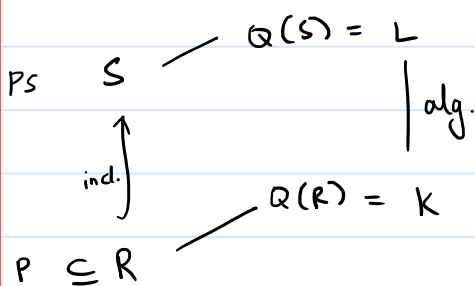 Q(S) = L
PS S
alg.
incl.
Q(R) = K
P ⊆ R